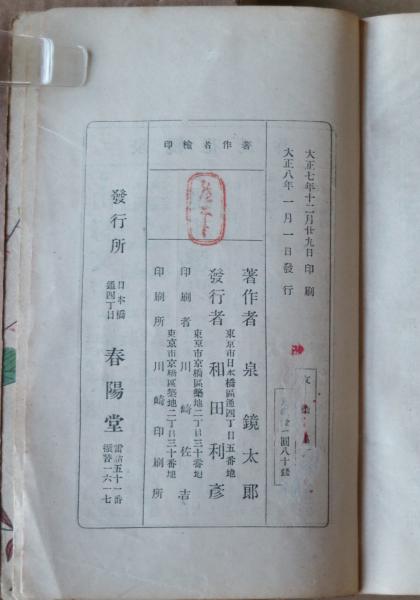 大正七年十二月廿九日印刷
大正八年一月一日發行
著作者檢印
著作者 泉鏡太郎
東京市日本橋區通四丁目五番地
發行者 和田利彦
東京市京橋區築地二丁目三十番地
印刷者 川崎佐吉
東京市京橋區築地二丁目三十番地
印刷所 川崎印刷所
發行所
日本橋
通四丁目
春陽堂
電話五十一番
振替一六一七